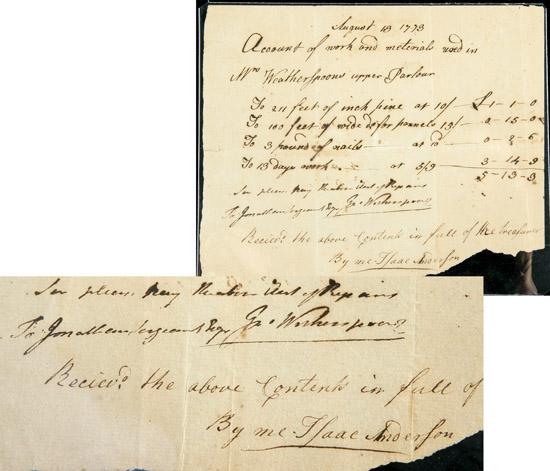 August 18 1773
Account of work and meterials used in
Mrs Weatherspoons upper Parlour
To 211 feet of inch pine at 10/- £1-1-0
To 100 feet of wide do for pannels 15/- 0-15-0
To 3 pound of nails at d 0-2-6
To 13 days work at 5/9 3-14-9
5-13-3
Sir please pay the above Act of Repairs
To Jonathan Sergeant Esqr Jno Witherspoon
Reciev'd the above Contents in full of the treasurer
By me Isaac Anderson
Sir please pay the above Act of Repairs
To Jonathan Sergeant Esqr Jno Witherspoon
Reciev'd the above Contents in full of
By me Isaac Anderson